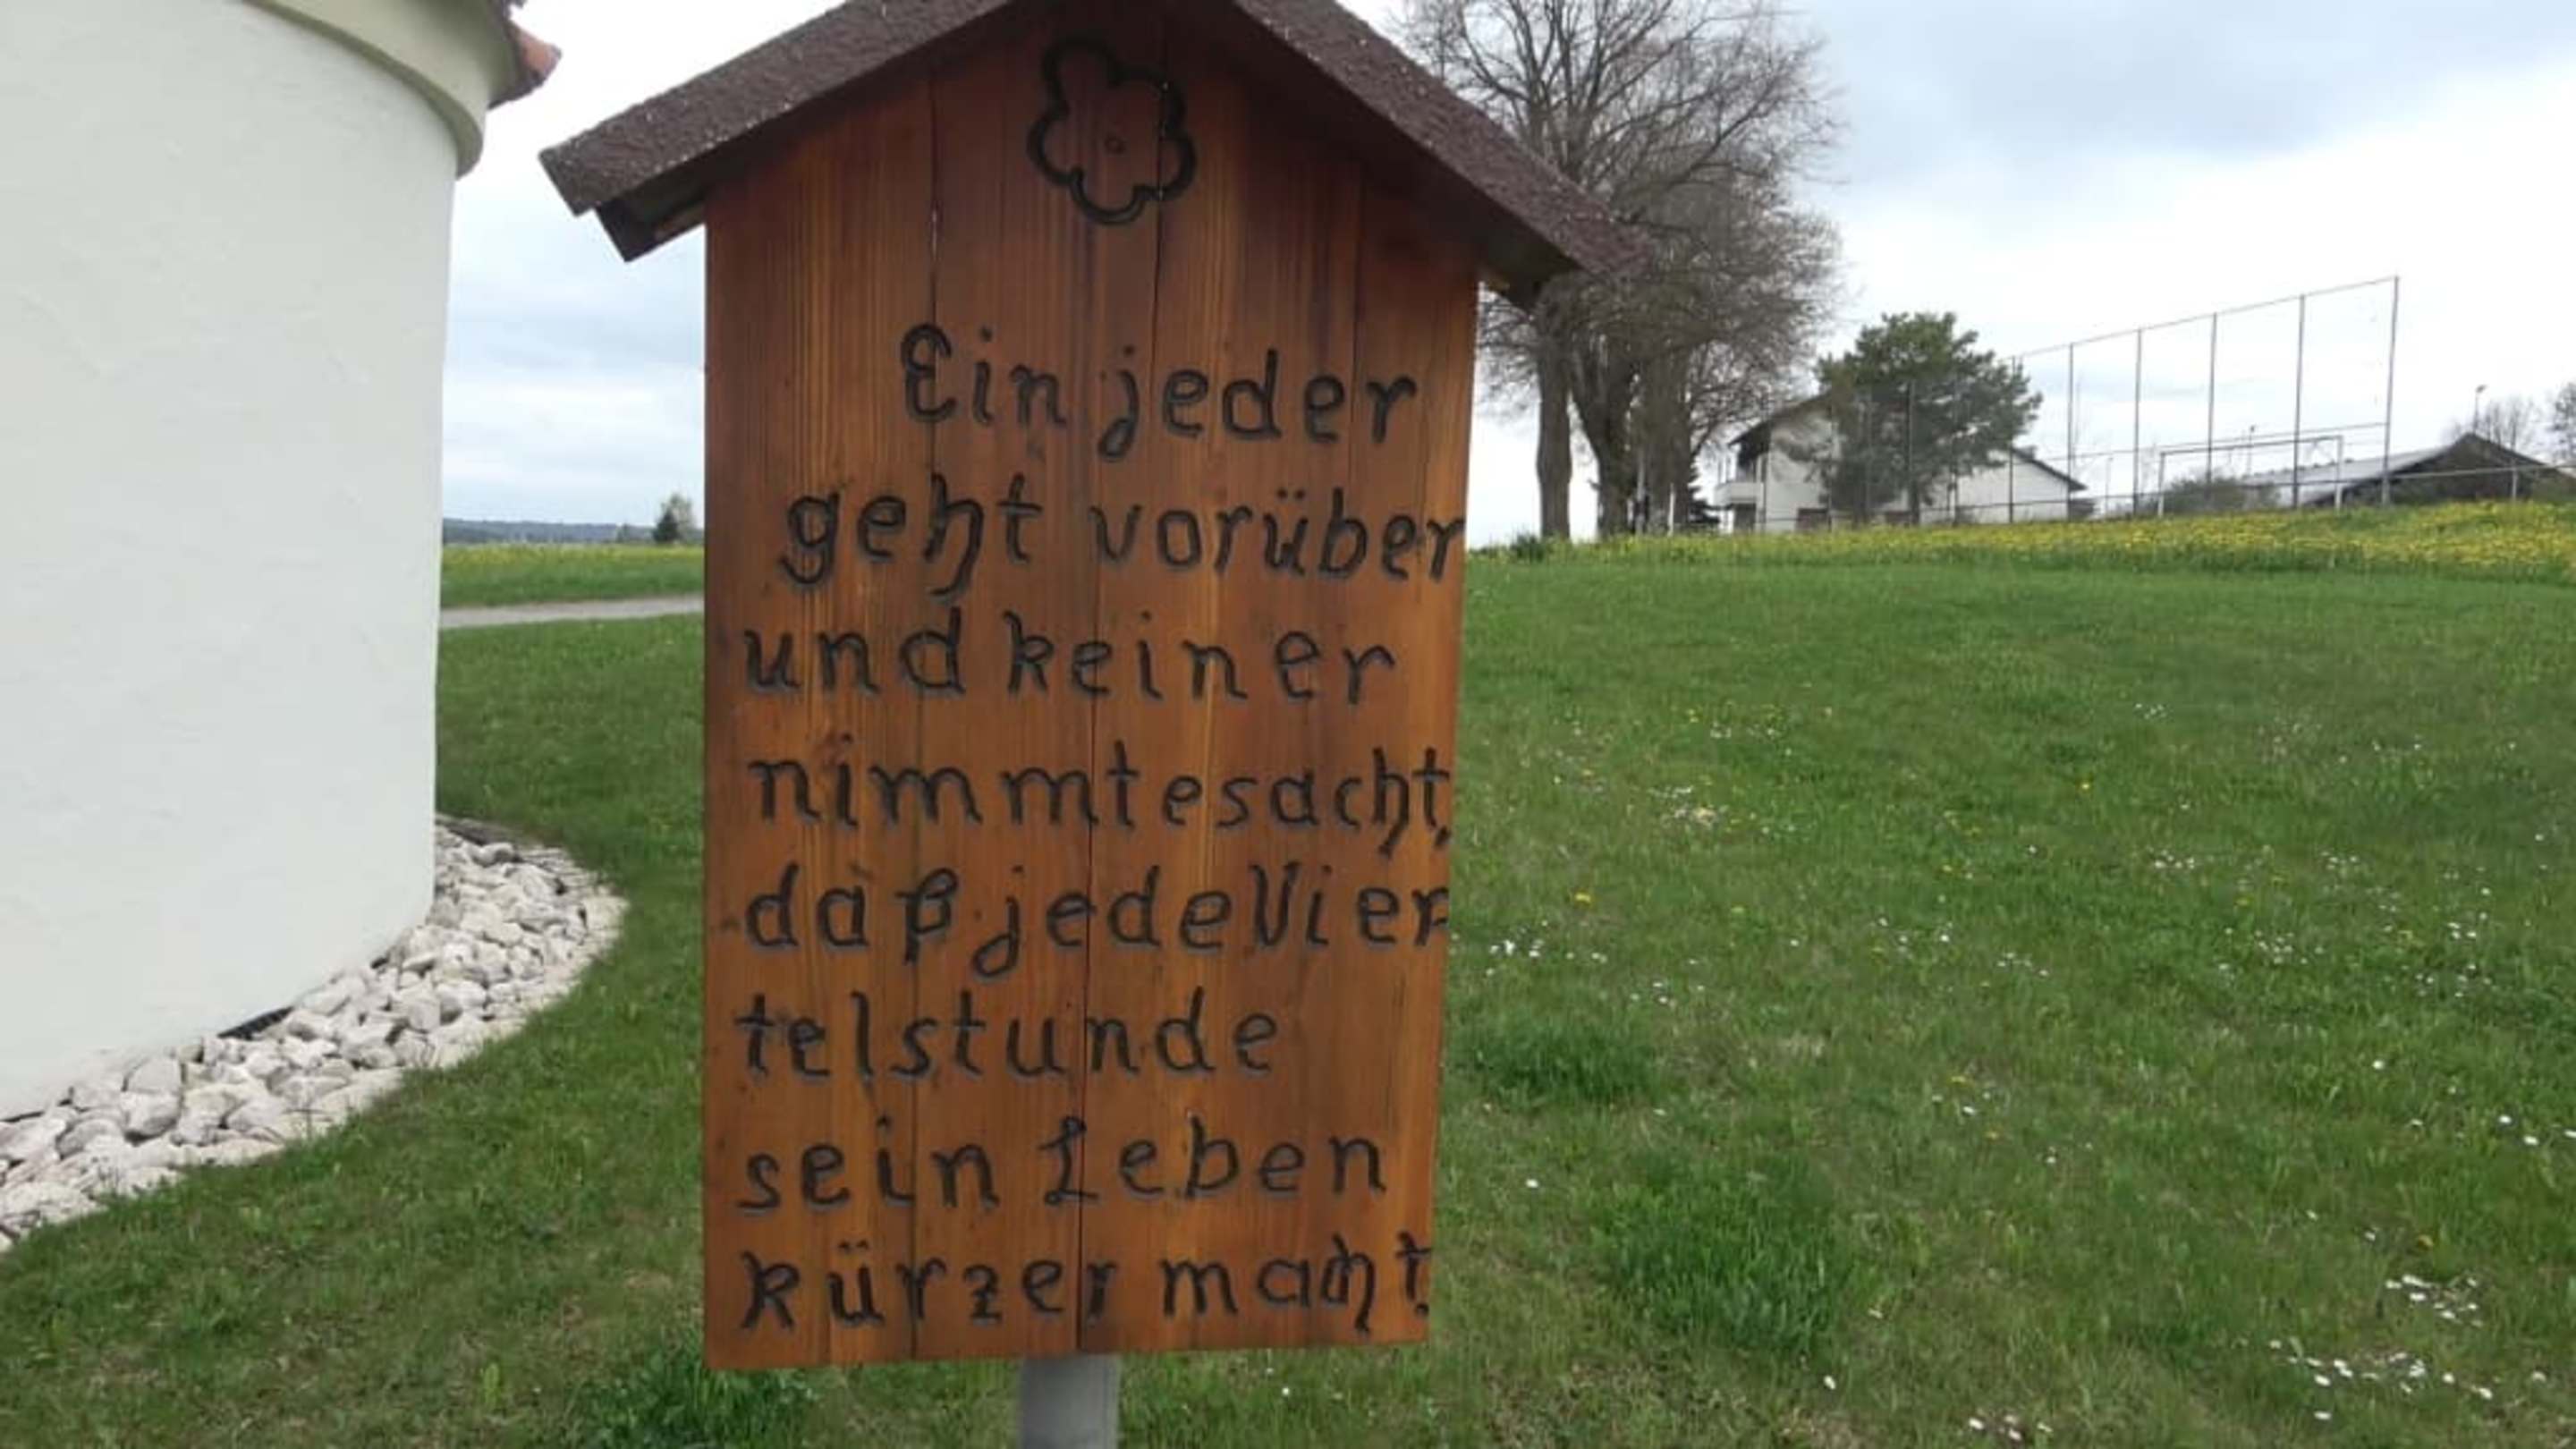 Ein jeder
geht vorüber
und keiner
nimmt es acht,
daß jede Vier
telstunde
sein Leben
kürzer macht.